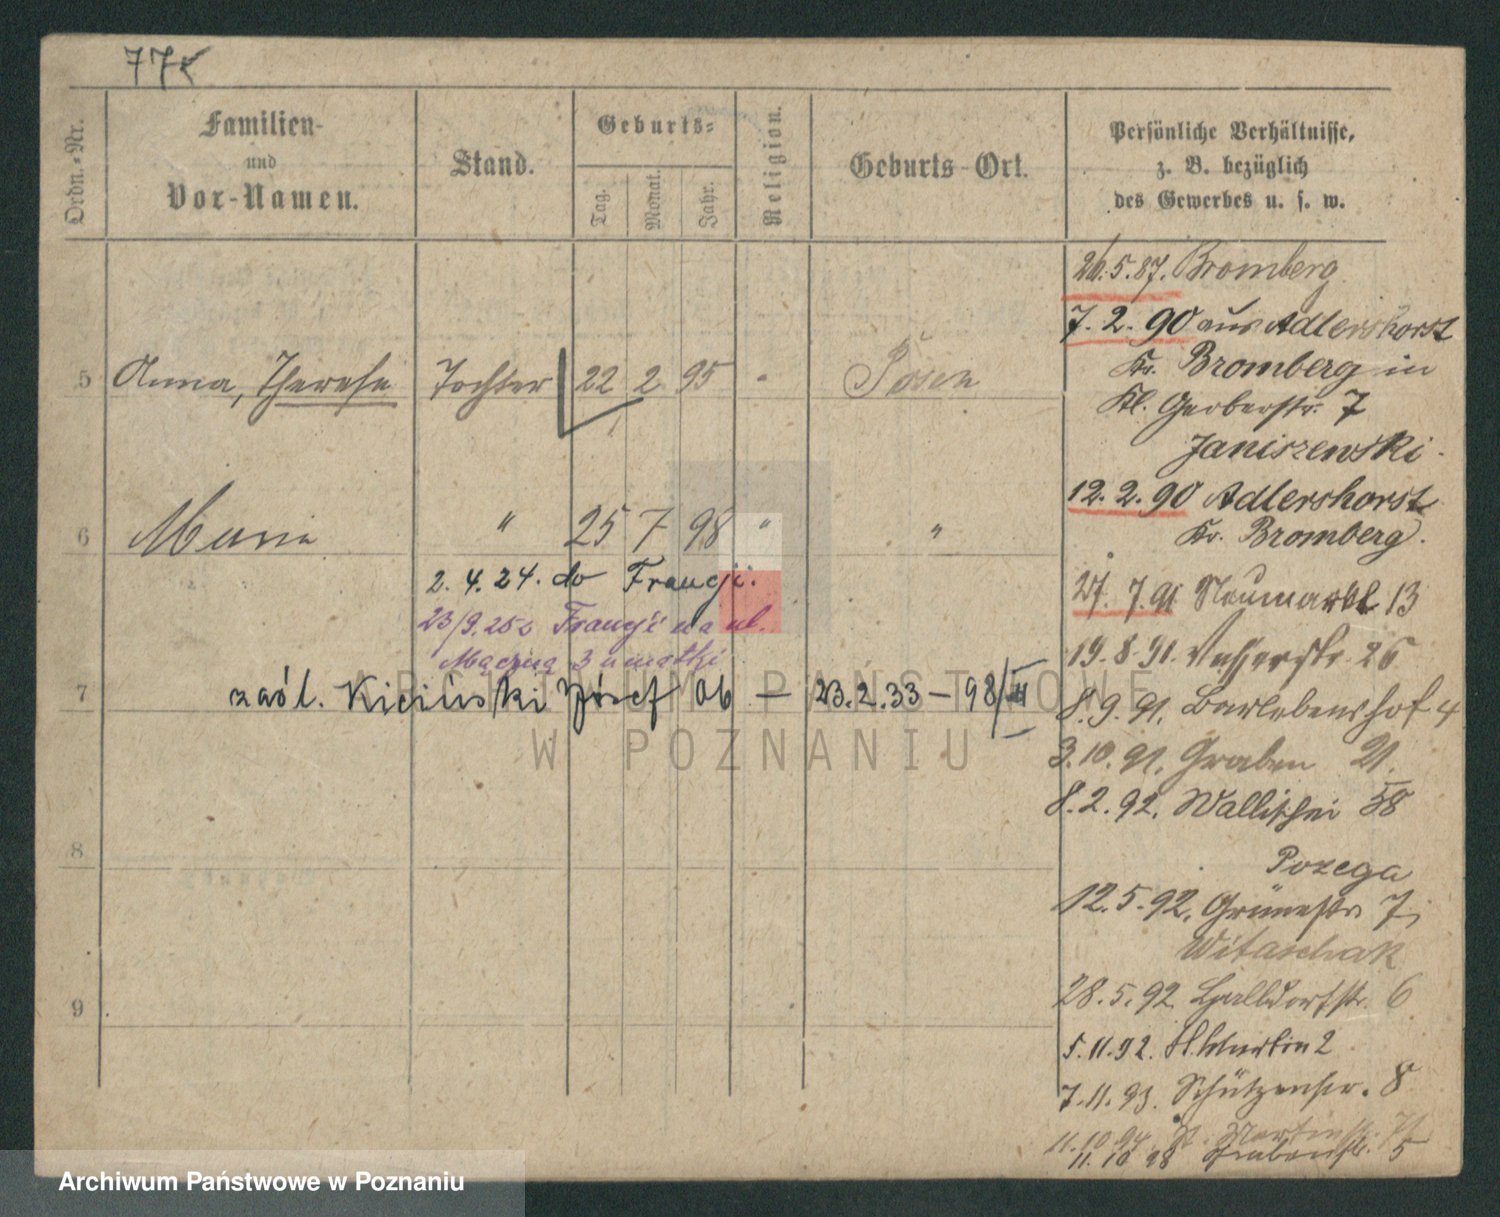 Ordn.-Nr.
Familien-
und
Vor-Namen.
Stand.
Geburts-
Tag.
Monat.
Jahr.
Religion.
Geburts-Ort.
Persönliche Verhältnisse,
z. B. bezüglich
des Gewerbes u. s. w.
5 Anna, Therese Tochter 22 2 95 " Posen
6 Maria " 25 7 98 " "
2.4.24. do Francji.
23/9.25 z Francji na ul.
Mączną 3 u matki
7 zaśl. Kiciński Józef Ob — 23.2.33 — 98/II
8
9
26.5.87. Bromberg
7.2.90 aus Adlershorst
Kr. Bromberg in
Kl. Gerberstr. 7
Janiszewski.
12.2.90 Adlershorst
Kr. Bromberg.
27.7.91 Neumarkt 13
19.8.91. 26
8.9.91. Bartebenshof 4
3.10.91. Graben 21
8.2.92. Wallischei 58
Pozega
12.5.92. Grünestr 7,
Witaschak
28.5.92 Halldorfstr. 6
5.11.92. St. Martin 2
7.11.93. Schützenstr. 8
11.10.94 St. Martinstr.
11.10 98 Grabenstr. 5
ARCHIWUM PAŃSTWOWE
W POZNANIU
Archiwum Państwowe w Poznaniu